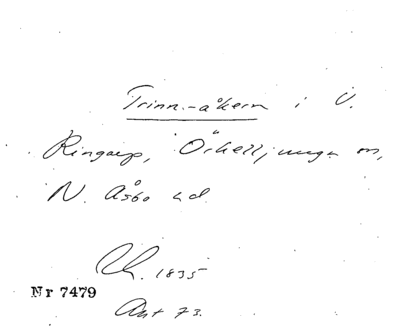 Trinn-åkern i V.
Ringarp, Örkelljunga sn,
N. Åsbo hd.
Rk. 1835
Nr 7479
Ant 73.